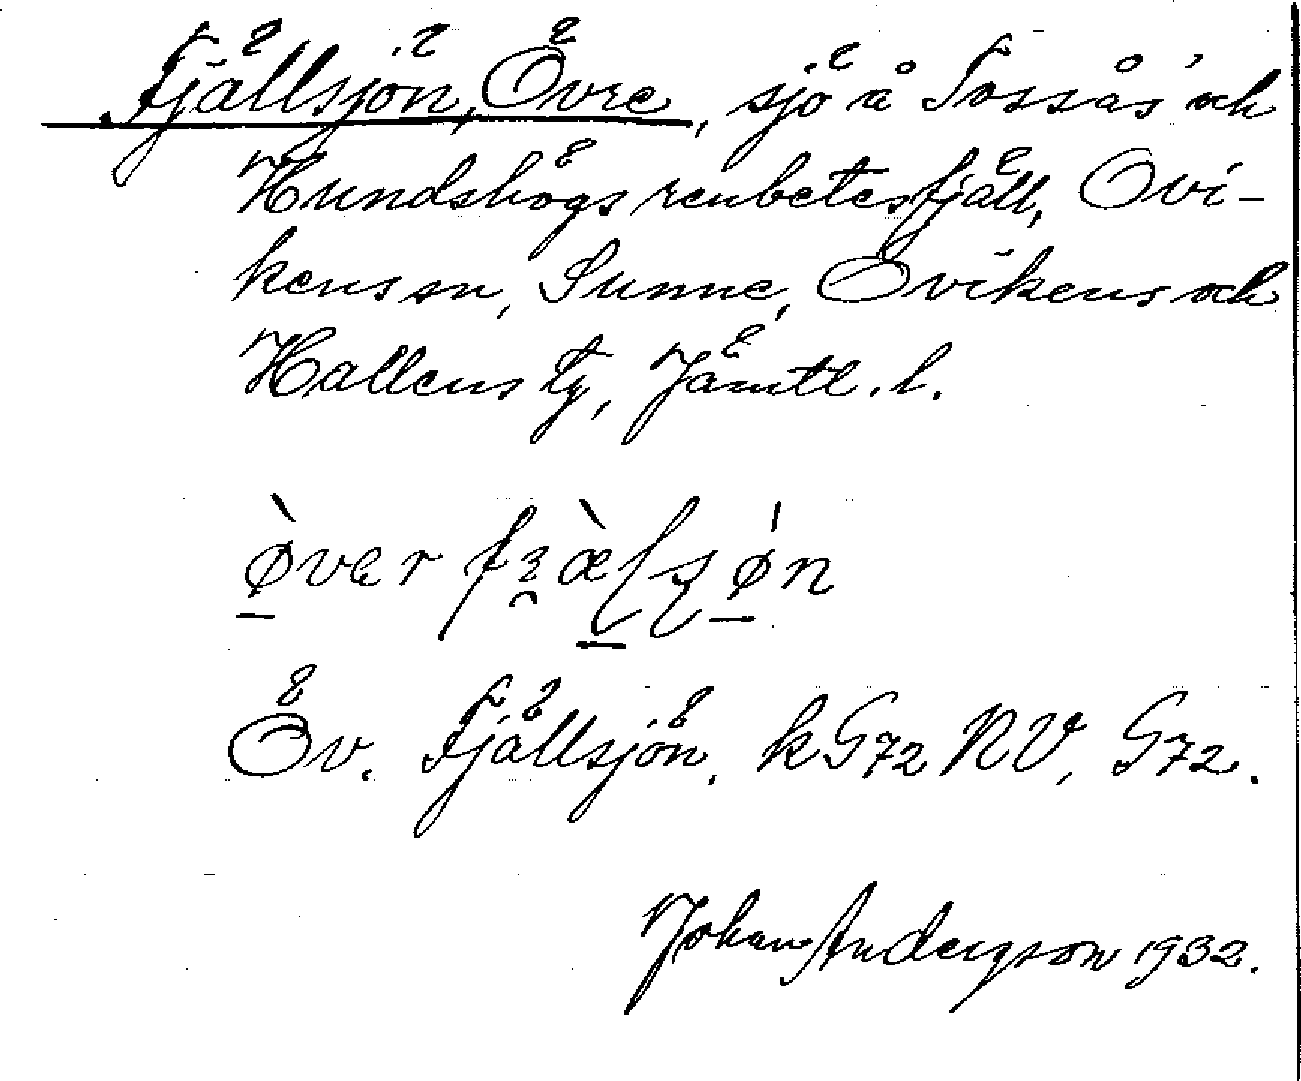 Fjällsjön, Övre, sjö å Tossås och
Hundshögs renbetesfjäll, Ovi-
kens sn, Sunne, Ovikens och
Hallens tg, Jämtl. l.
Öv. Fjällsjön. k G72 NV, G72.
Johan Andergson 1932.